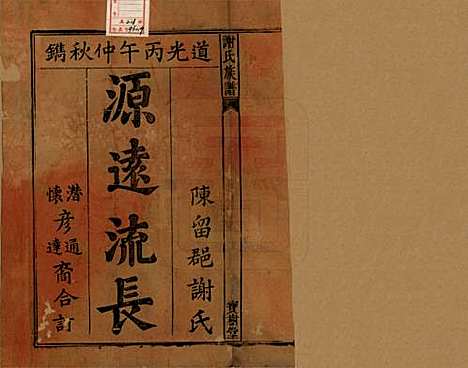 道光丙午仲秋鐫
陳留郡謝氏
源遠流長
潛通
懷彥達裔合訂
謝氏族譜
寶樹堂